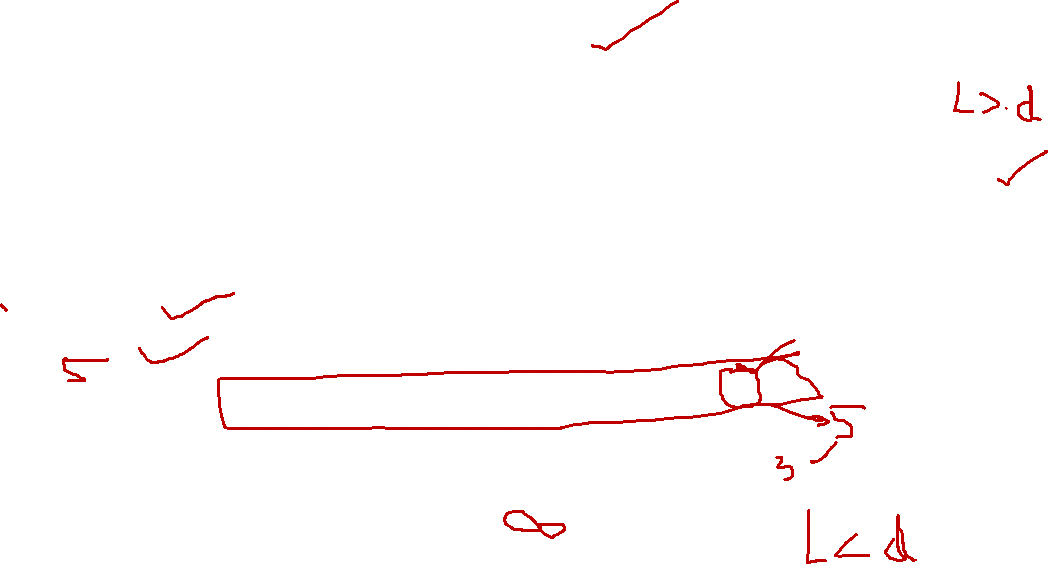 L > d
5
5
3
∞
L < d